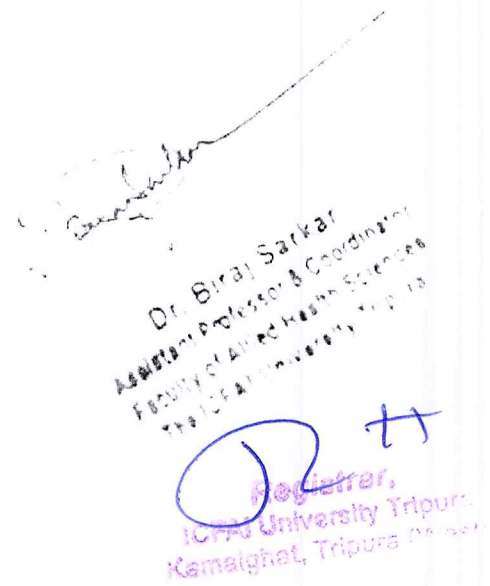 Dr. Biraj Sarkar
Assistant Professor & Coordinator
Faculty of Allied Health Sciences
The ICFAI University Tripura
Registrar,
ICFAI University Tripura
Kamalghat, Tripura